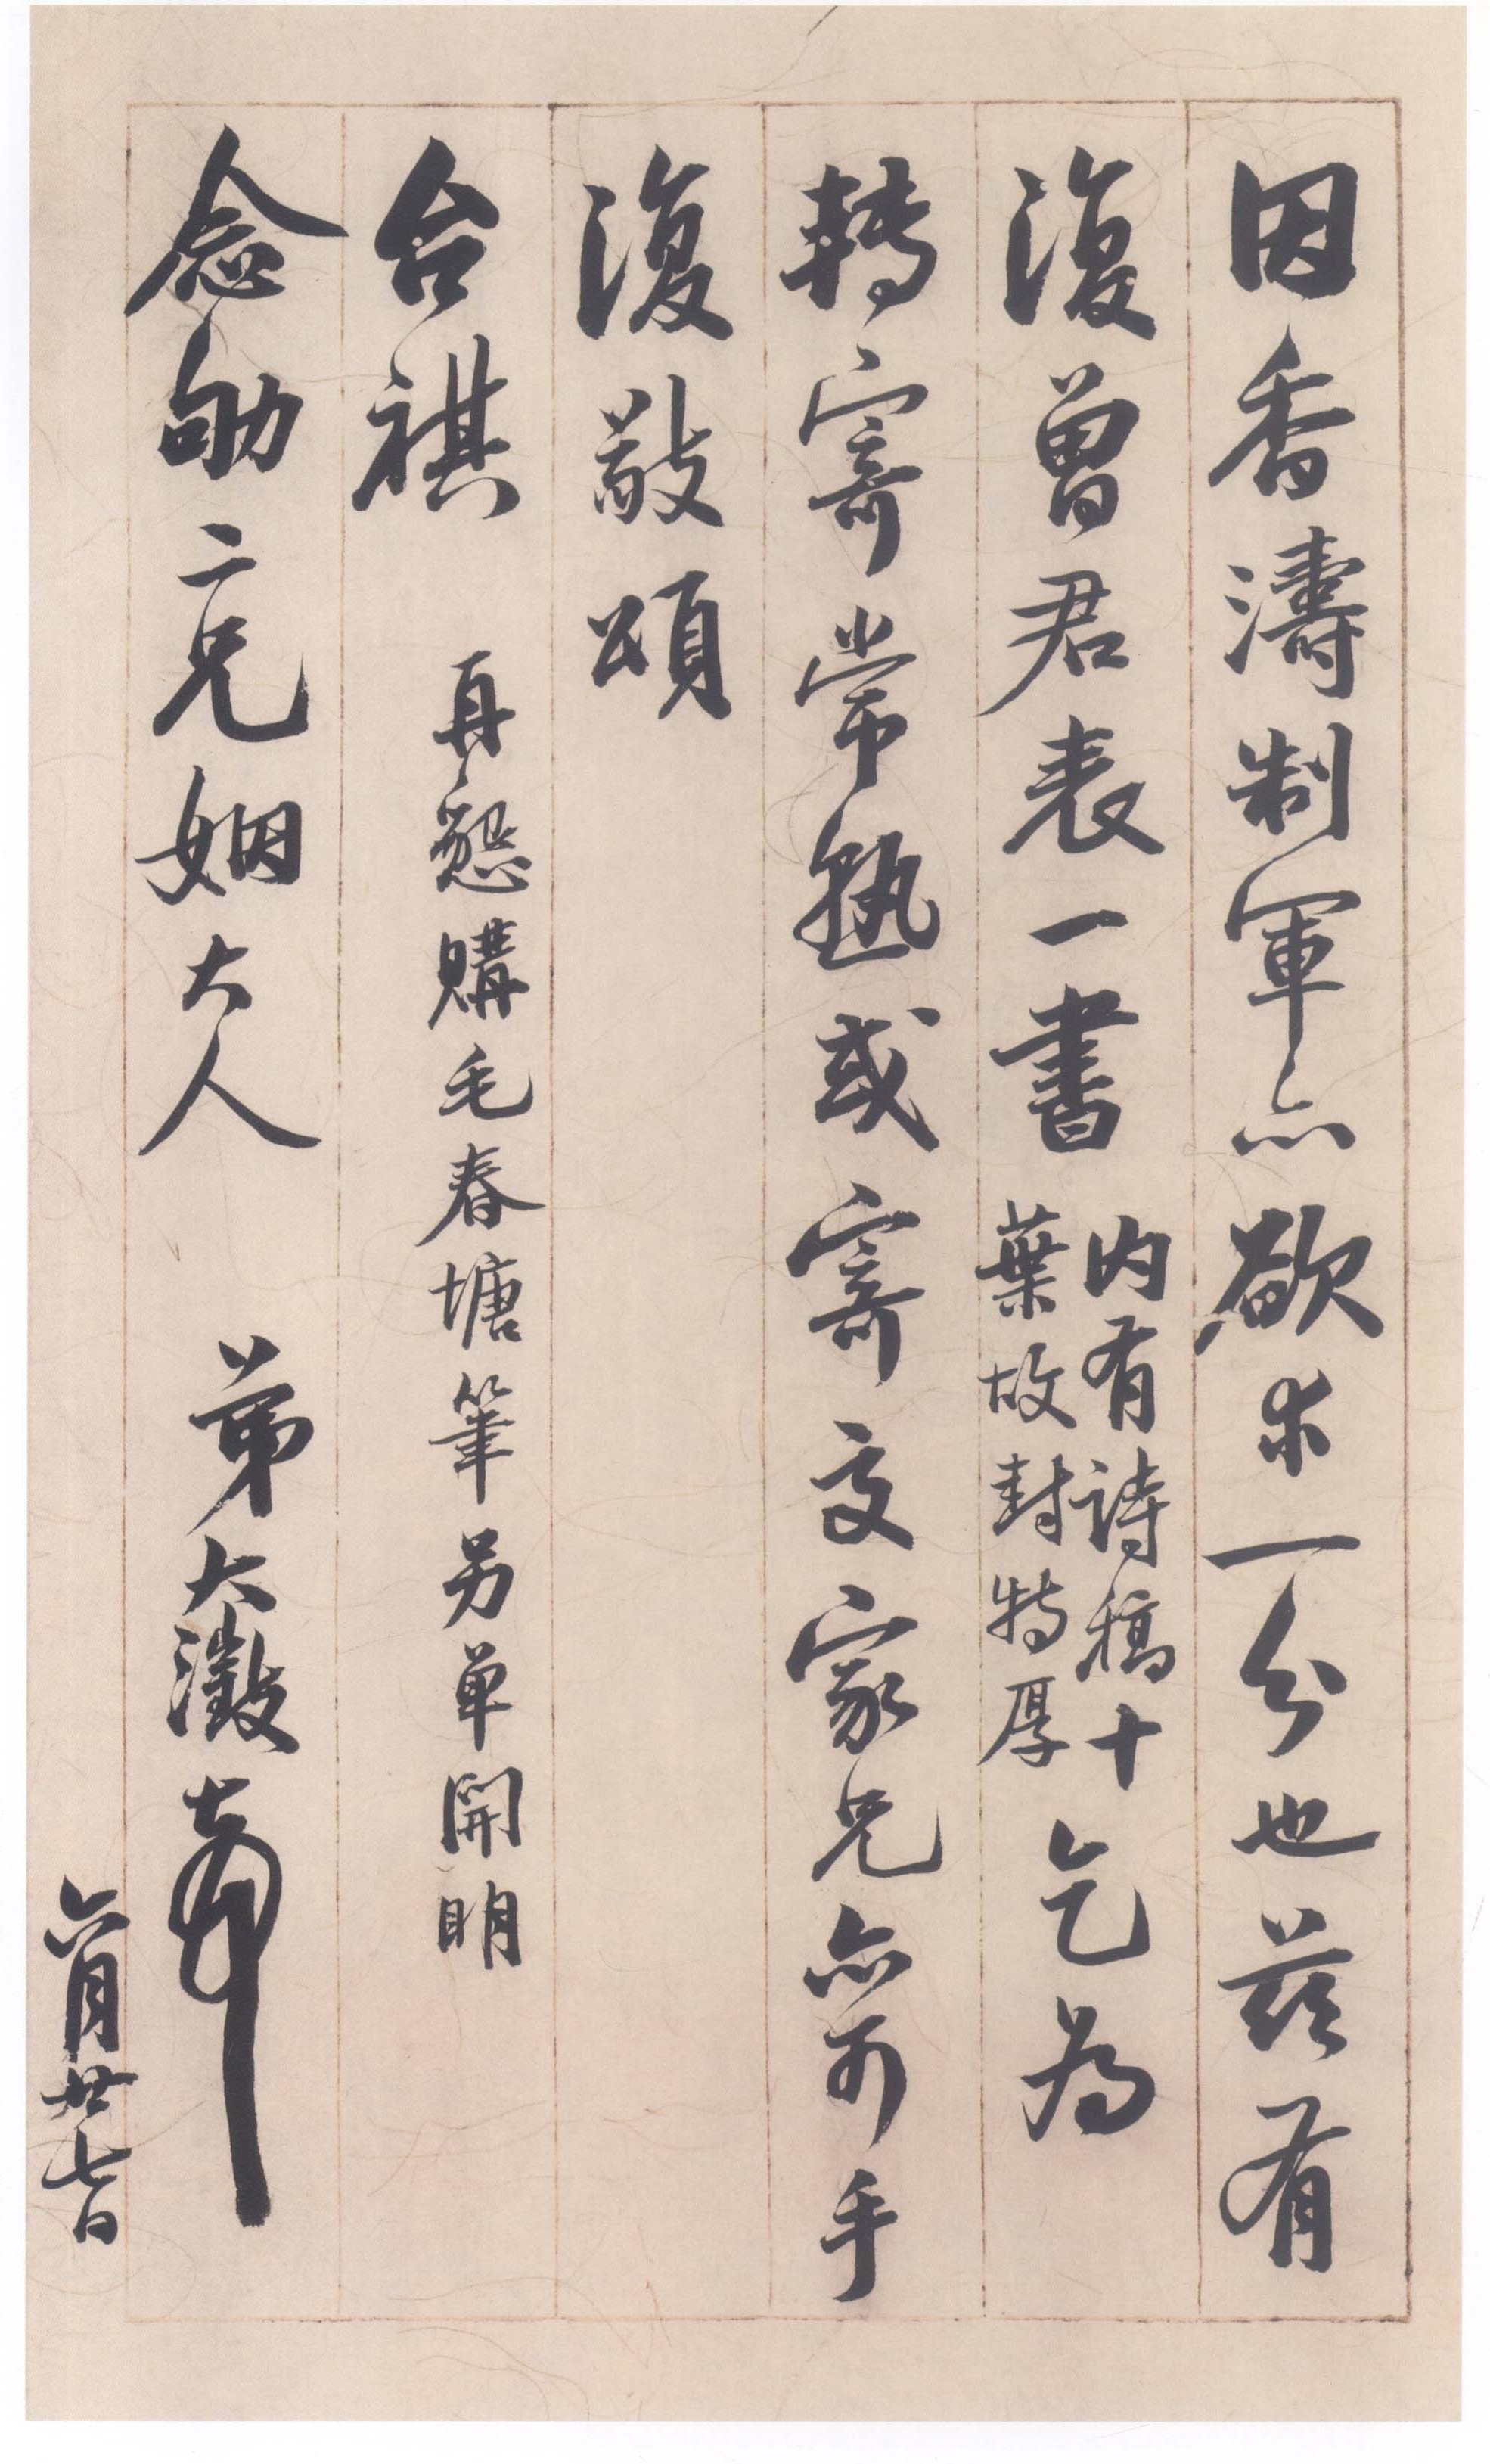 因香濤制軍亦欲求一分也茲有
復曾君表一書
內有詩稿十
葉故封特厚
乞為
轉寄常熟或寄交家兄亦可手
復敬頌
台祺
再懇購毛春塘筆另單開明
念劬二兄姻大人
弟大澂頓首
六月廿七日